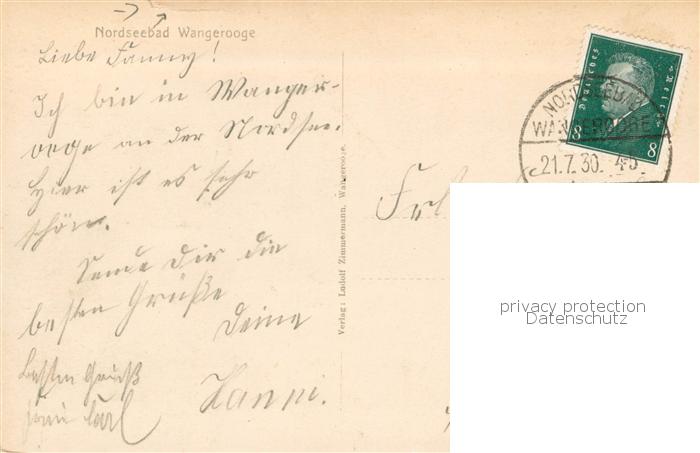 Nordseebad Wangerooge
Liebe Fanny!
Ich bin in Wanger-
ooge an der Nordsee.
Hier ist es sehr
schön.
Sende Dir die
besten Grüße
Deine
Hanni.
Besten Gruß
Carl
Verlag: Ludolf Zimmermann, Wangerooge.
Deutsches Reich
8 8
NORDSEEBAD
WANGEROOGE
21.7.30.
privacy protection
Datenschutz